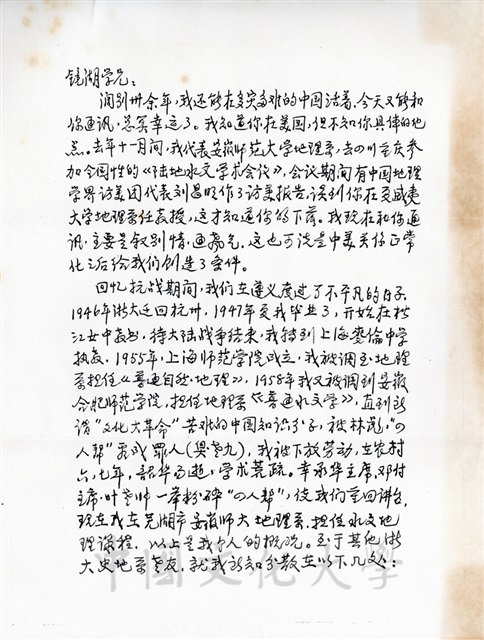 镜湖学兄：
阔别卅余年，我还能在多灾多难的中国活着，今天又能和
你通讯，总算幸运了。我知道你在美国，但不知你具体的地
点。去年十一月间，我代表安徽师范大学地理系，去四川重庆参
加全国性的《陆地水文学术会议》，会议期间有中国地理
学界访美团代表刘昌明作了访美报告，谈到你在夏威夷
大学地理系任教授，这才知道你的下落。我现在和你通
讯，主要是叙别情，通声气。这也可说是中美关系正常
化之后给我们创造了条件。
回忆抗战期间，我们在遵义度过了不平凡的日子。
1946年浙大迁回杭州，1947年夏我毕业了，开始在松
江女中教书，待大陆战争结束，我转到上海麦伦中学
执教。1955年，上海师范学院成立，我被调至地理
系担任《普通自然地理》，1958年我又被调到安徽
合肥师范学院，担任地理系《普通水文学》，直到所
谓“文化大革命”苦难的中国知识分子，被林彪，“四
人帮”看成罪人（臭老九），我被下放劳动，在农村
六，七年，韶华易逝，学术荒疏。幸承华主席、邓付
主席、叶老帅一举粉碎“四人帮”，使我们重回讲台，
现在我在芜湖市安徽师大地理系，担任水文地
理课程。以上是我个人的概况。至于其他浙
大史地系老友，就我所知分散在以下几处：
中國文化大學